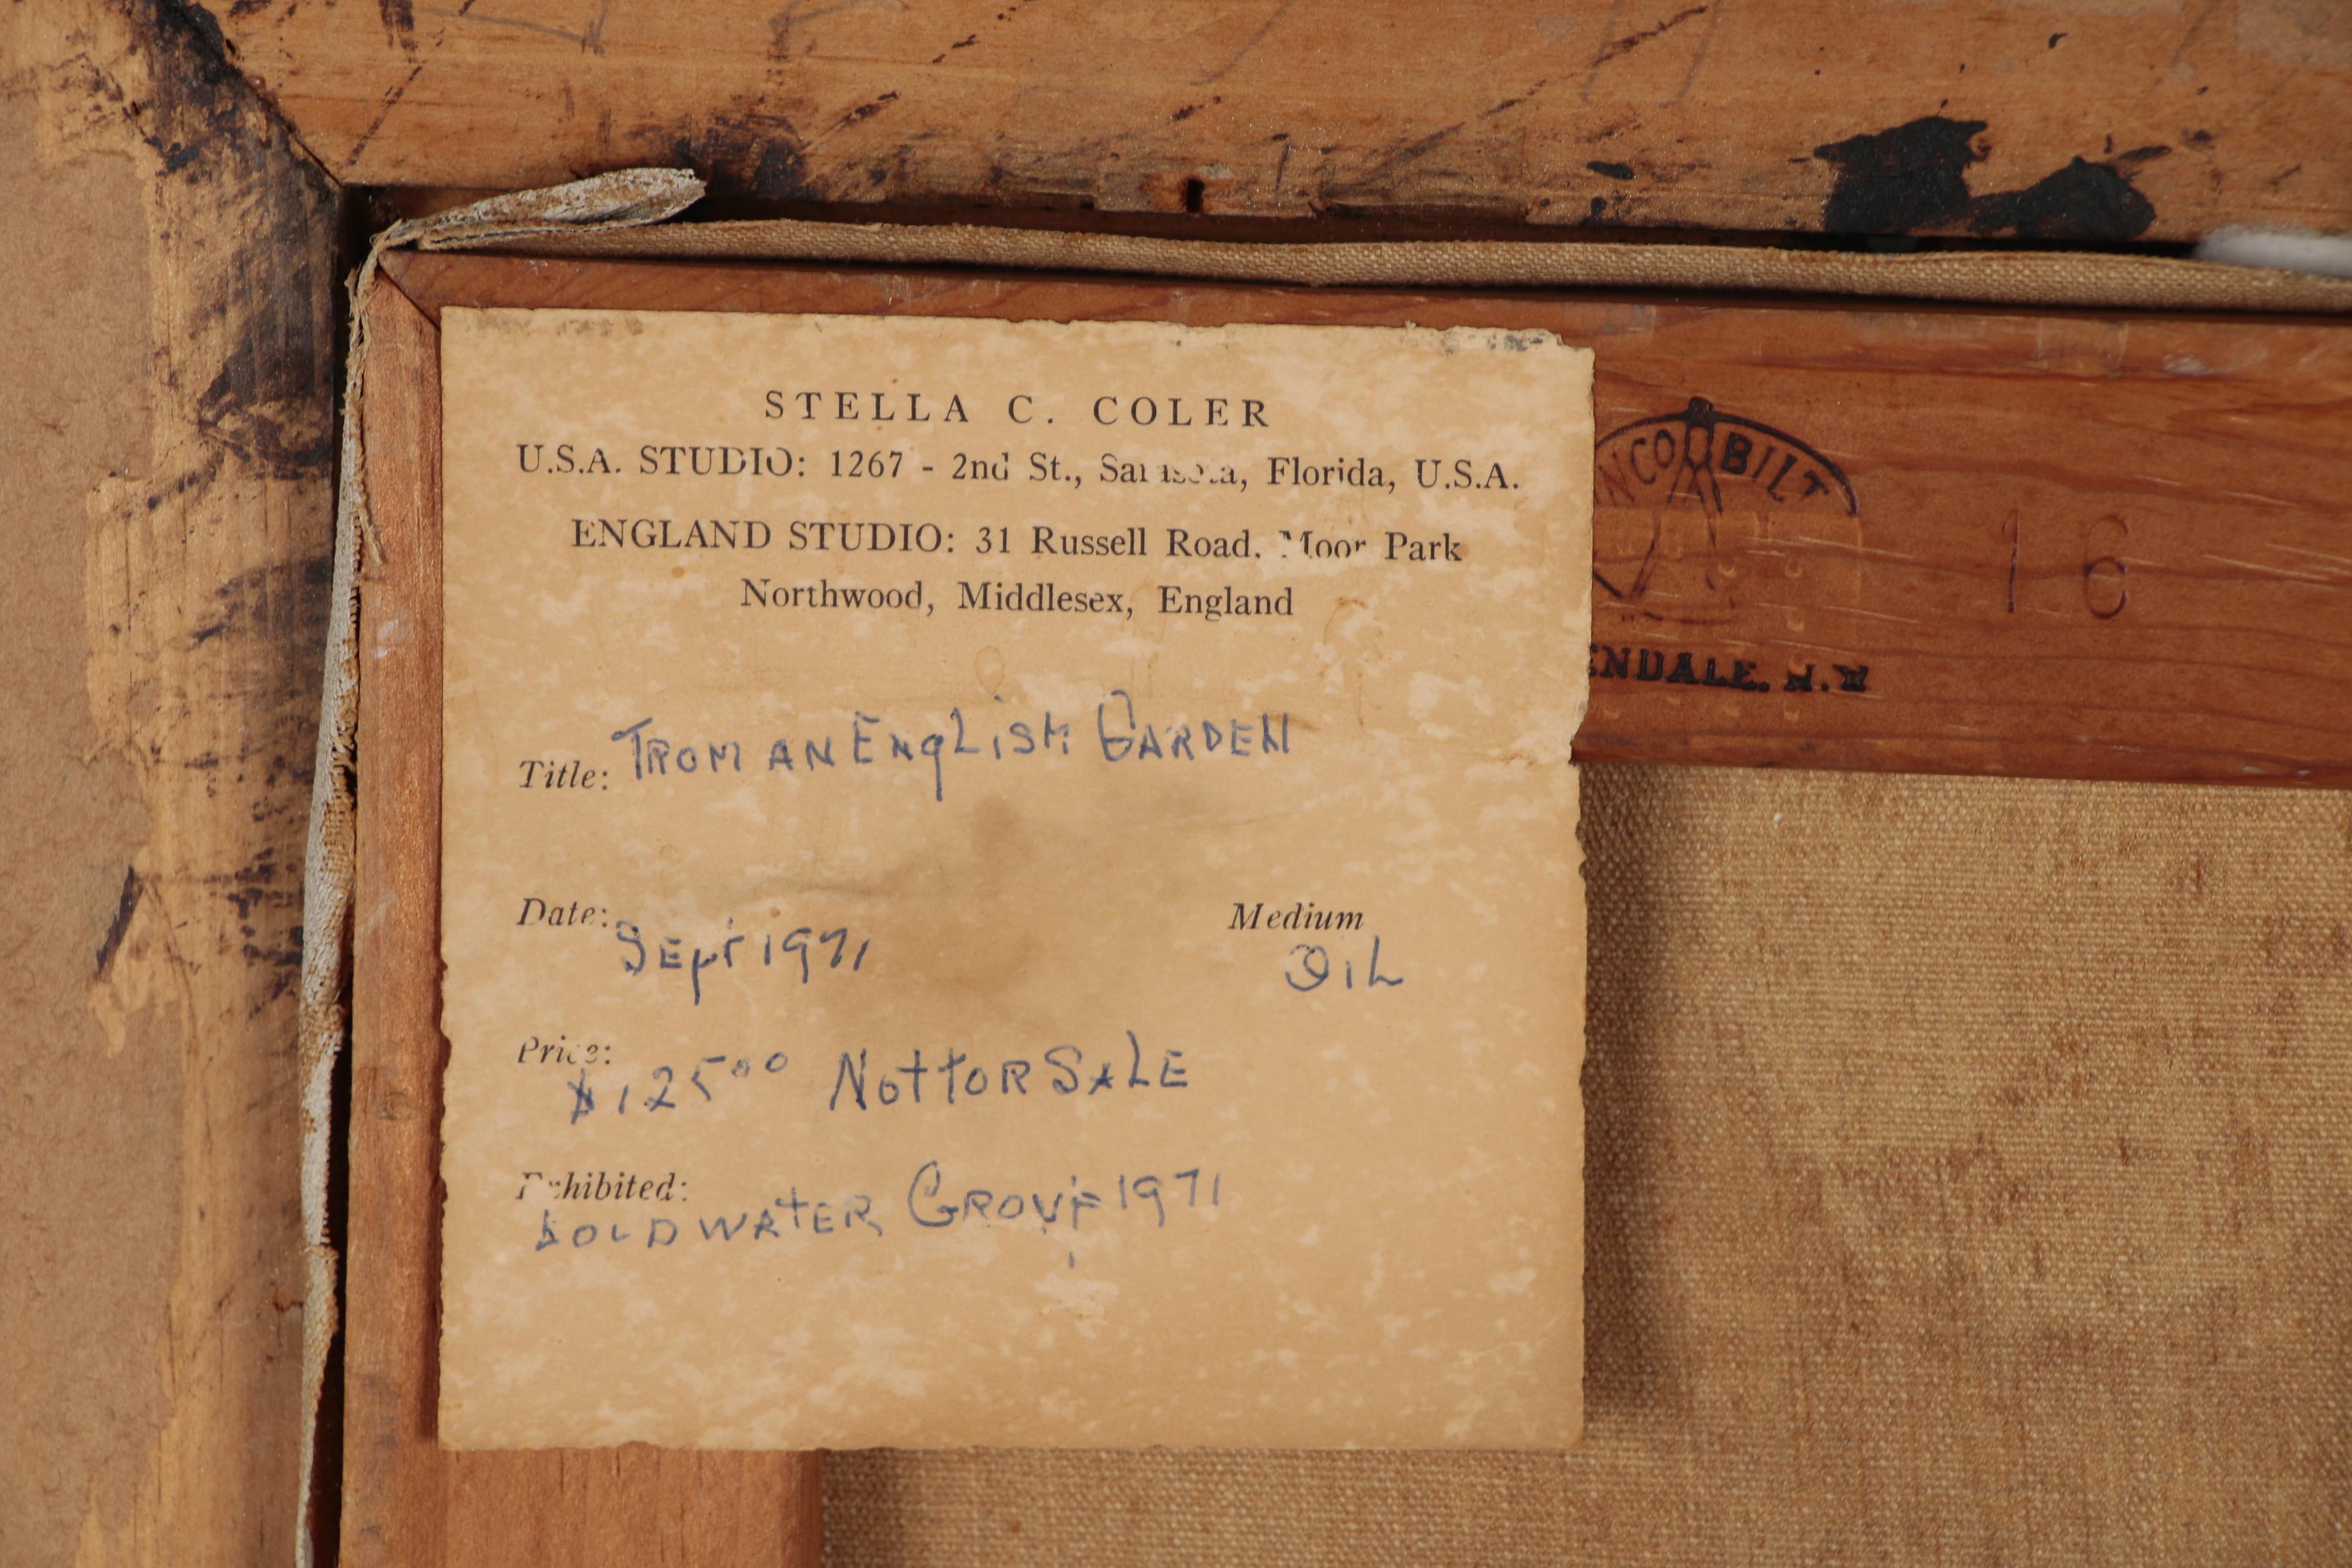 STELLA C. COLER
U.S.A. STUDIO: 1267 - 2nd St., Sarasota, Florida, U.S.A.
ENGLAND STUDIO: 31 Russell Road, Moor Park
Northwood, Middlesex, England
Title: FROM AN ENGLISH GARDEN
Date: SEPT 1971
Medium
OIL
Price: $125.00 NOT FOR SALE
Exhibited:
GROUP 1971
BILT
16
NDALE, N.Y